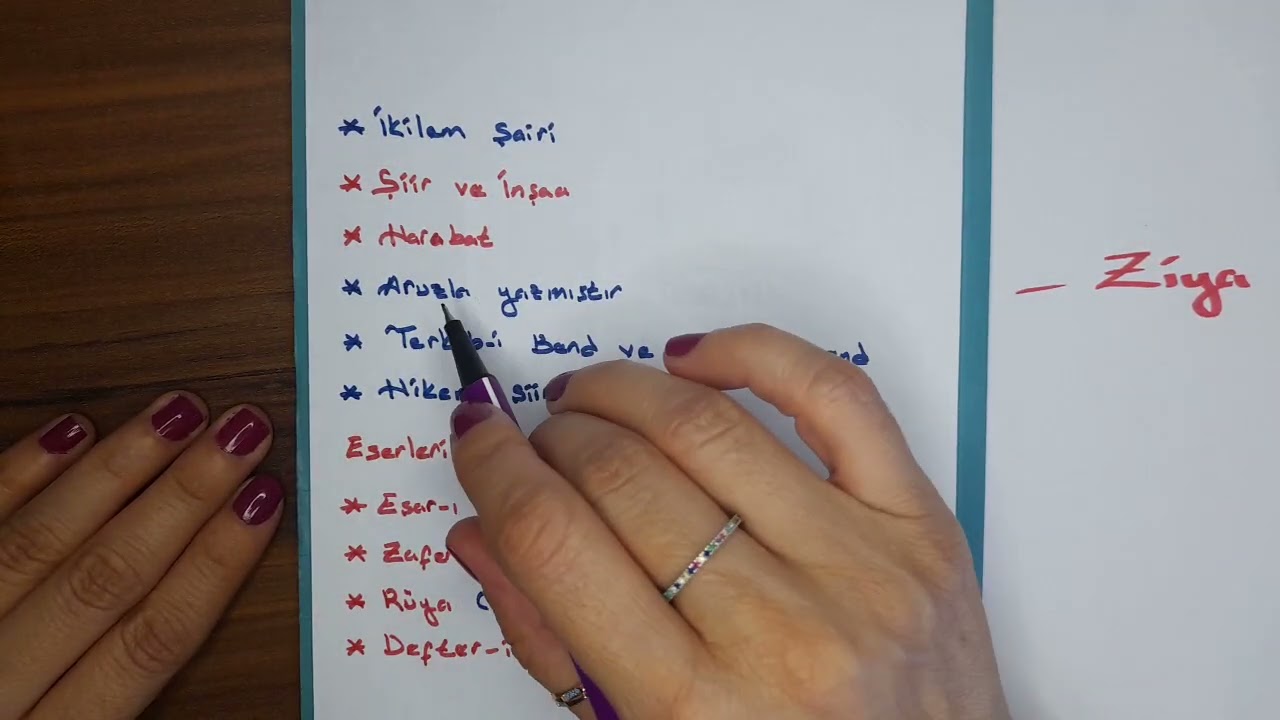 * İkilem Şairi
* Şiir ve İnşaa
* Harabat
* Aruzla yazmıştır
* Bend ve
*
Eserleri
* Eşar-ı
* Zafer
* Rüya (
* Defter-i
– Ziya